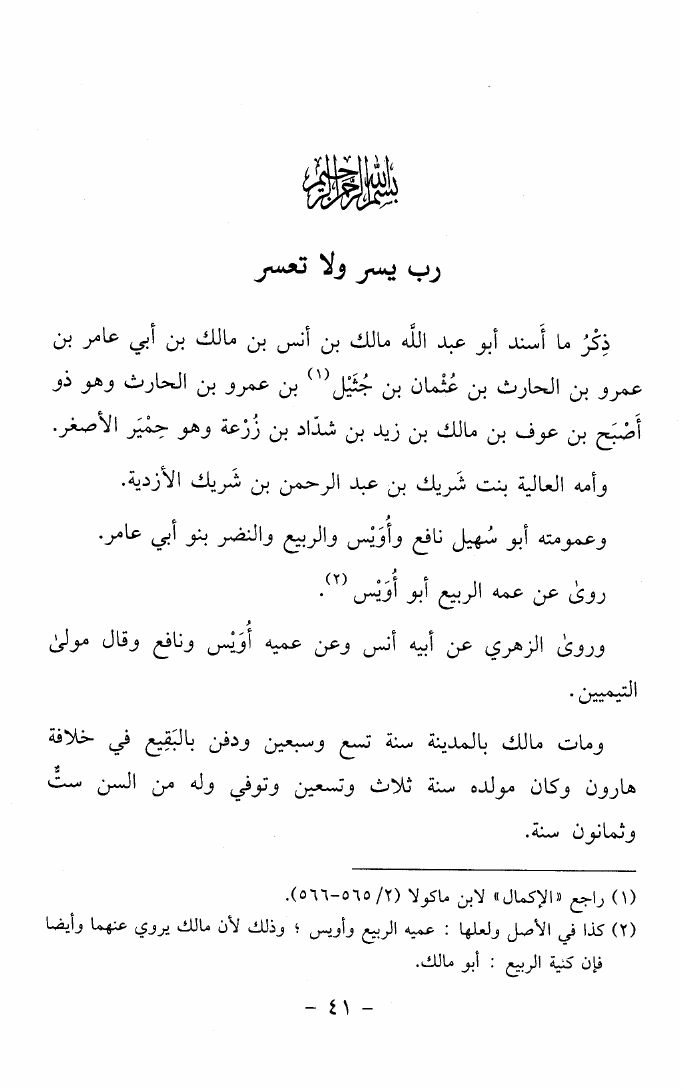 بسم الله الرحمن الرحيم
رب يسر ولا تعسر
ذِكْرُ ما أَسند أبو عبد اللَّه مالك بن أنس بن مالك بن أبي عامر بن
عمرو بن الحارث بن عُثْمان بن جُثَيْل(١) بن عمرو بن الحارث وهو ذو
أَصْبَح بن عوف بن مالك بن زيد بن شدّاد بن زُرْعة وهو حِمْيَر الأصغر.
وأمه العالية بنت شَريك بن عبد الرحمن بن شَريك الأزدية.
وعمومته أبو سُهيل نافع وأُوَيْس والربيع والنضر بنو أبي عامر.
روىٰ عن عمه الربيع أبو أُوَيْس(٢).
وروىٰ الزهري عن أبيه أنس وعن عميه أُوَيْس ونافع وقال مولىٰ
التيميين.
ومات مالك بالمدينة سنة تسع وسبعين ودفن بالبَقِيع في خلافة
هارون وكان مولده سنة ثلاث وتسعين وتوفي وله من السن ستٌّ
وثمانون سنة.
(١) راجع «الإكمال» لابن ماكولا (٢/ ٥٦٥-٥٦٦).
(٢) كذا في الأصل ولعلها : عميه الربيع وأويس ؛ وذلك لأن مالك يروي عنهما وأيضا
فإن كنية الربيع : أبو مالك.
- ٤١ -